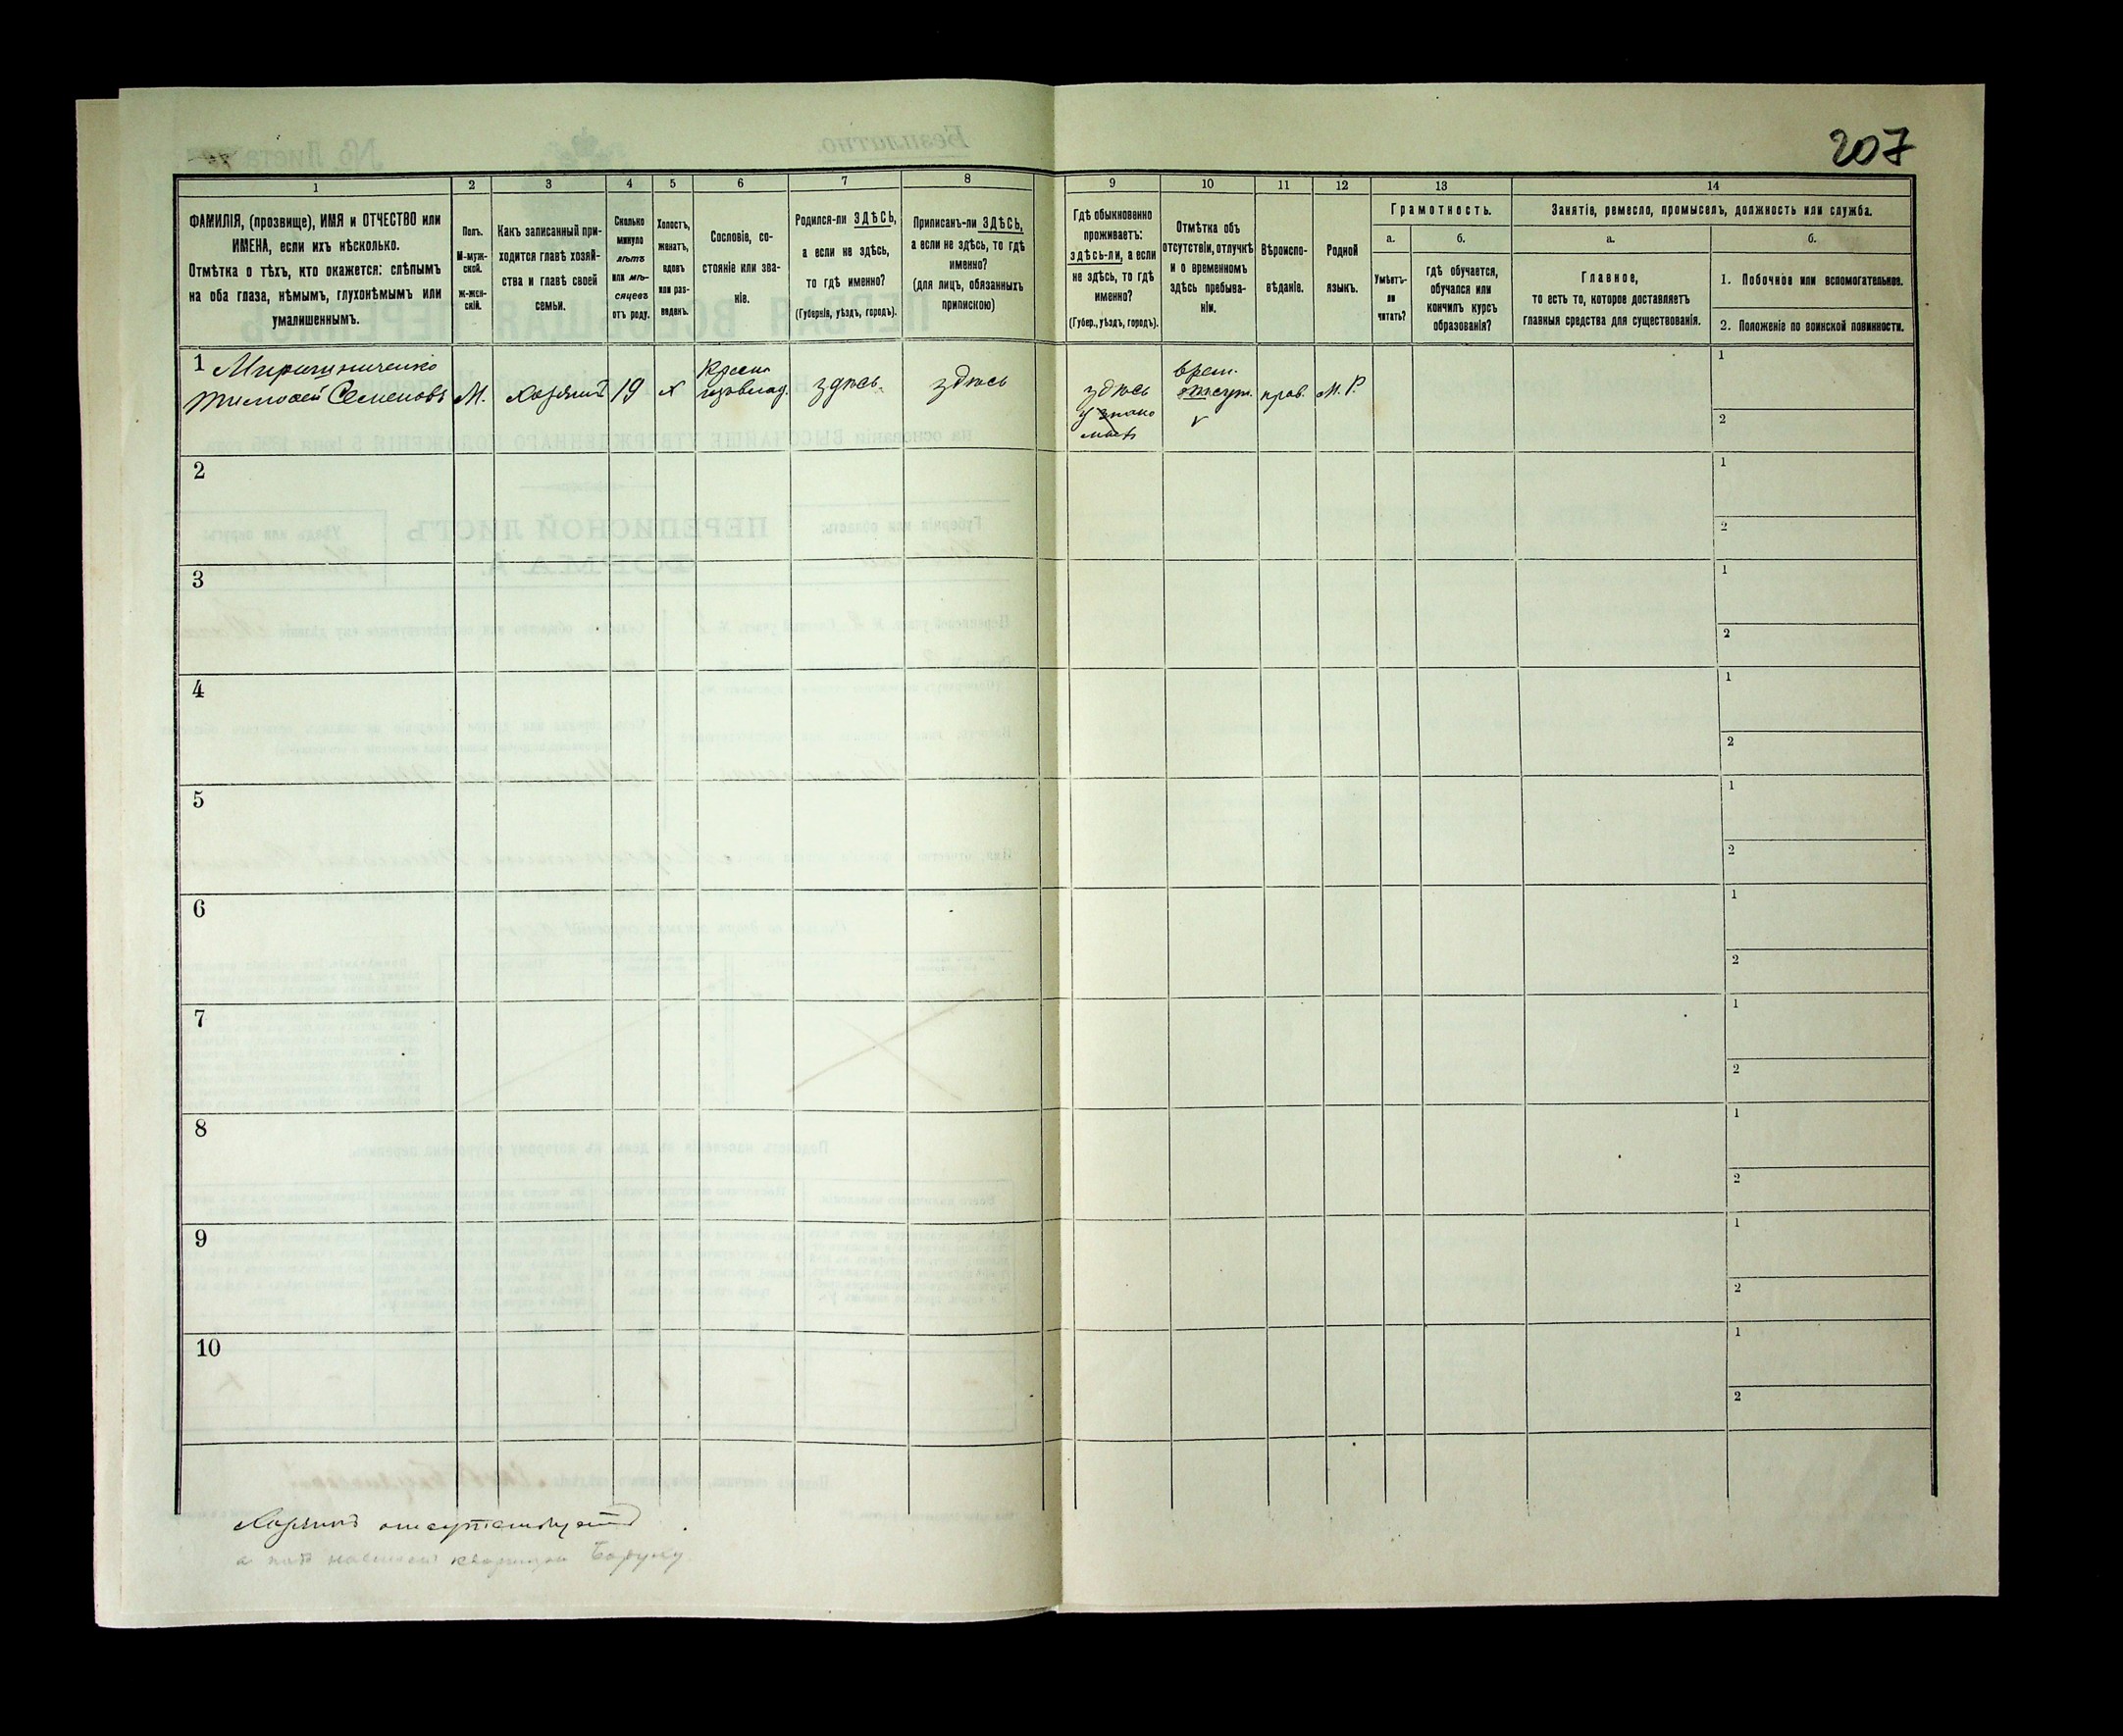 207
1 2 3 4 5 6 7 8 9 10 11 12 13 14
ФАМИЛІЯ, (прозвище), ИМЯ и ОТЧЕСТВО или
ИМЕНА, если ихъ нѣсколько.
Отмѣтка о тѣхъ, кто окажется: слѣпымъ
на оба глаза, нѣмымъ, глухонѣмымъ или
умалишеннымъ.
Полъ.
М-муж-
ской.
Ж-жен-
скій.
Какъ записанный при-
ходится главѣ хозяй-
ства и главѣ своей
семьи.
Сколько
минуло
лѣтъ
или мѣ-
сяцевъ
отъ роду.
Холостъ,
женатъ,
вдовъ
или раз-
веденъ.
Сословіе, со-
стояніе или зва-
ніе.
Родился-ли ЗДѢСЬ,
а если не здѣсь,
то гдѣ именно?
(Губернія, уѣздъ, городъ).
Приписанъ-ли ЗДѢСЬ,
а если не здѣсь, то гдѣ
именно?
(для лицъ, обязанныхъ
припискою)
Гдѣ обыкновенно
проживаетъ:
здѣсь-ли, а если
не здѣсь, то гдѣ
именно?
(Губер., уѣздъ, городъ).
Отмѣтка объ
отсутствіи, отлучкѣ
и о временномъ
здѣсь пребыва-
ніи.
Вѣроиспо-
вѣданіе.
Родной
языкъ.
Грамотность.
а.
Умѣетъ-
ли
читать?
б.
гдѣ обучается,
обучался или
кончилъ курсъ
образованія?
Занятіе, ремесло, промыселъ, должность или служба.
а.
Главное,
то есть то, которое доставляетъ
главныя средства для существованія.
б.
1. Побочное или вспомогательное.
2. Положеніе по воинской повинности.
1 Мирошниченко
Тимофей Семеновъ
М.
хозяинъ
19
х
Крест.
здѣсь
здѣсь
здѣсь
врем.
отсут.
прав.
М. Р.
1
2
2
1
2
3
1
2
4
1
2
5
1
2
6
1
2
7
1
2
8
1
2
9
1
2
10
1
2
Хозяинъ отсутствуетъ